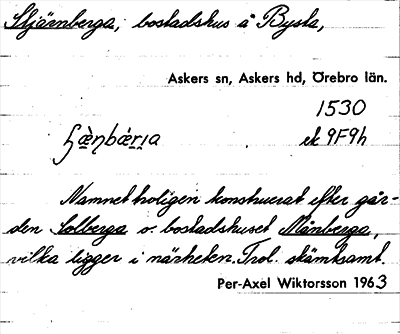 Stjärnberga, bostadshus å Bysta,
Askers sn, Askers hd, Örebro län.
1530
ek 9F9h
Namnet troligen konstruerat efter går-
den Solberga o. bostadshuset Månberga,
vilka ligger i närheten. Trol. skämtsamt.
Per-Axel Wiktorsson 1963